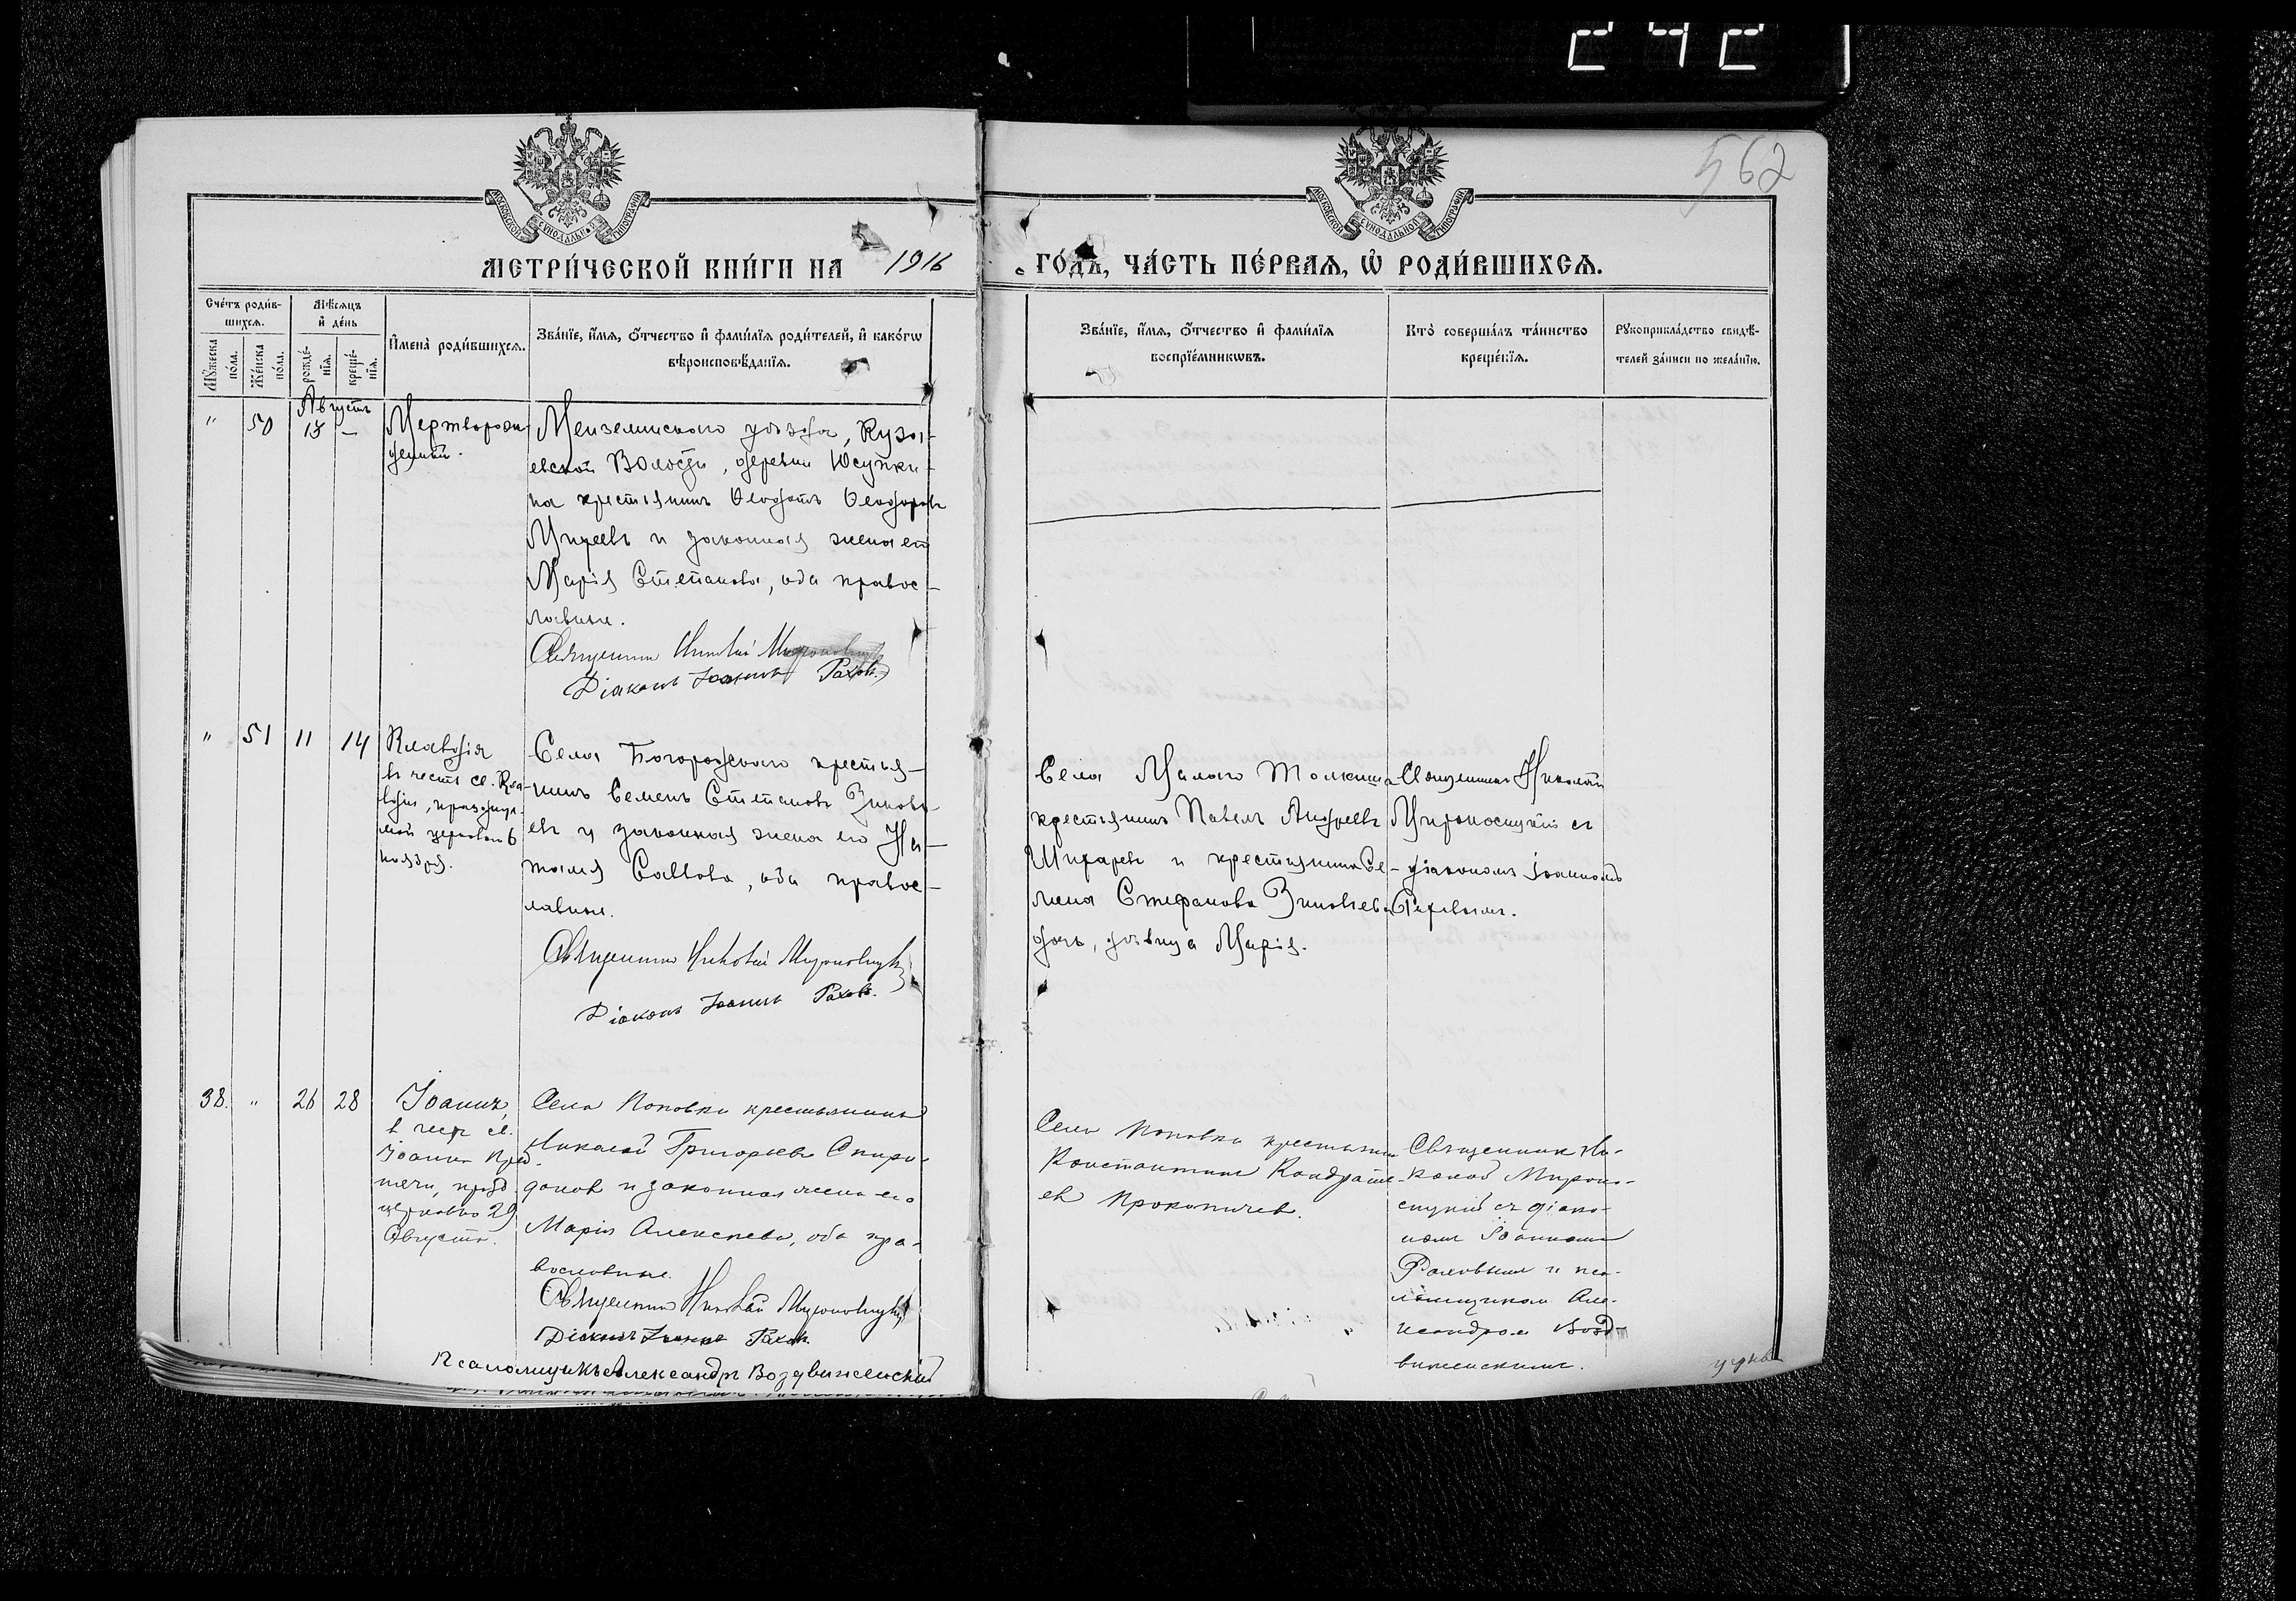 242
562
МОСКОВСКОЙ СУНОДАЛЬНОЙ ТИПОГРАФИИ
МОСКОВСКОЙ СУНОДАЛЬНОЙ ТИПОГРАФИИ
МЕТРИ́ЧЕСКОЙ КНИ́ГИ НА 1916
ГО́ДЪ, ЧА́СТЬ ПЕ́РВАЯ, Ѽ РОДИ́ВШИХСЯ.
Сче́тъ роди́в-
шихся.
Мѣ́сяцъ
и҆ де́нь
Мꙋ́жеска
по́ла.
Же́нска
по́ла.
рожде́-
нїя.
креще́-
нїя.
И҆мена̀ роди́вшихся.
Зва́нїе, и҆́мя, ѻ҆́тчество и҆ фами́лїя роди́телей, и҆ како́гѡ
вѣроисповѣ́данїя.
Зва́нїе, и҆́мя, ѻ҆́тчество и҆ фами́лїя
воспрїе́мникѡвъ.
Кто̀ соверша́лъ та́инство
креще́нїя.
Рꙋкоприкла́дство свидѣ́-
телей за́писи по жела́нїю.
Августъ
" 50 13 —
Мертворож-
денный.
Мензелинскаго уѣзда, Кузай-
евской Волости, деревни Юсупки-
на крестьянинъ Ѳеодотъ Ѳеодоровъ
и законная жена его
Марія Степанова, оба правос-
лавные.
Священникъ Николай Мироносицкій
Діаконъ Іоаннъ Раховъ.
" 51 11 14
Клавдія
въ честь св. Кла-
вдіи, празднуе-
мой церковью 6
ноября.
Села Богородскаго крестья-
нинъ Семенъ Степановъ Зиновь-
евъ и законная жена его На-
талія Саввова, оба правос-
лавные.
Священникъ Николай Мироносицкій
Діаконъ Іоаннъ Раховъ.
Села Малаго Толкиша
крестьянинъ Павелъ Андреевъ
Ширяевъ и крестьянина Се-
мена Стефанова Зиновьева
дочь, дѣвица Марія.
Священникъ Николай
Мироносицкій съ
діакономъ Іоанномъ
38. " 26 28
Іоаннъ,
в честь св.
Іоанна Пред-
течи, празд.
церковью 29
Августа.
Села Поповки крестьянинъ
Николай Григорьевъ Спири-
доновъ и законная жена его
Марія Алексѣева, оба пра-
вославные.
Священникъ Николай Мироносицкій
Діаконъ Іоаннъ Раховъ.
Псаломщикъ Александръ Воздвиженскій
Села Поповки крестьянинъ
Константинъ Кондрать-
евъ Прокопичев.
Священник Ни-
колай Мироно-
сицкій съ діако-
номъ Іоанномъ
Раховымъ и пса-
ломщиком Але-
ксандром Возд-
виженскимъ.